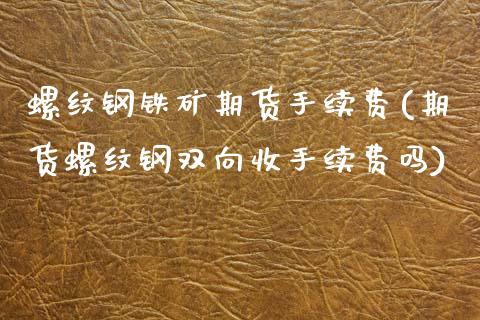 螺纹钢铁矿期货手续费(期
货螺纹钢双向收手续费吗)